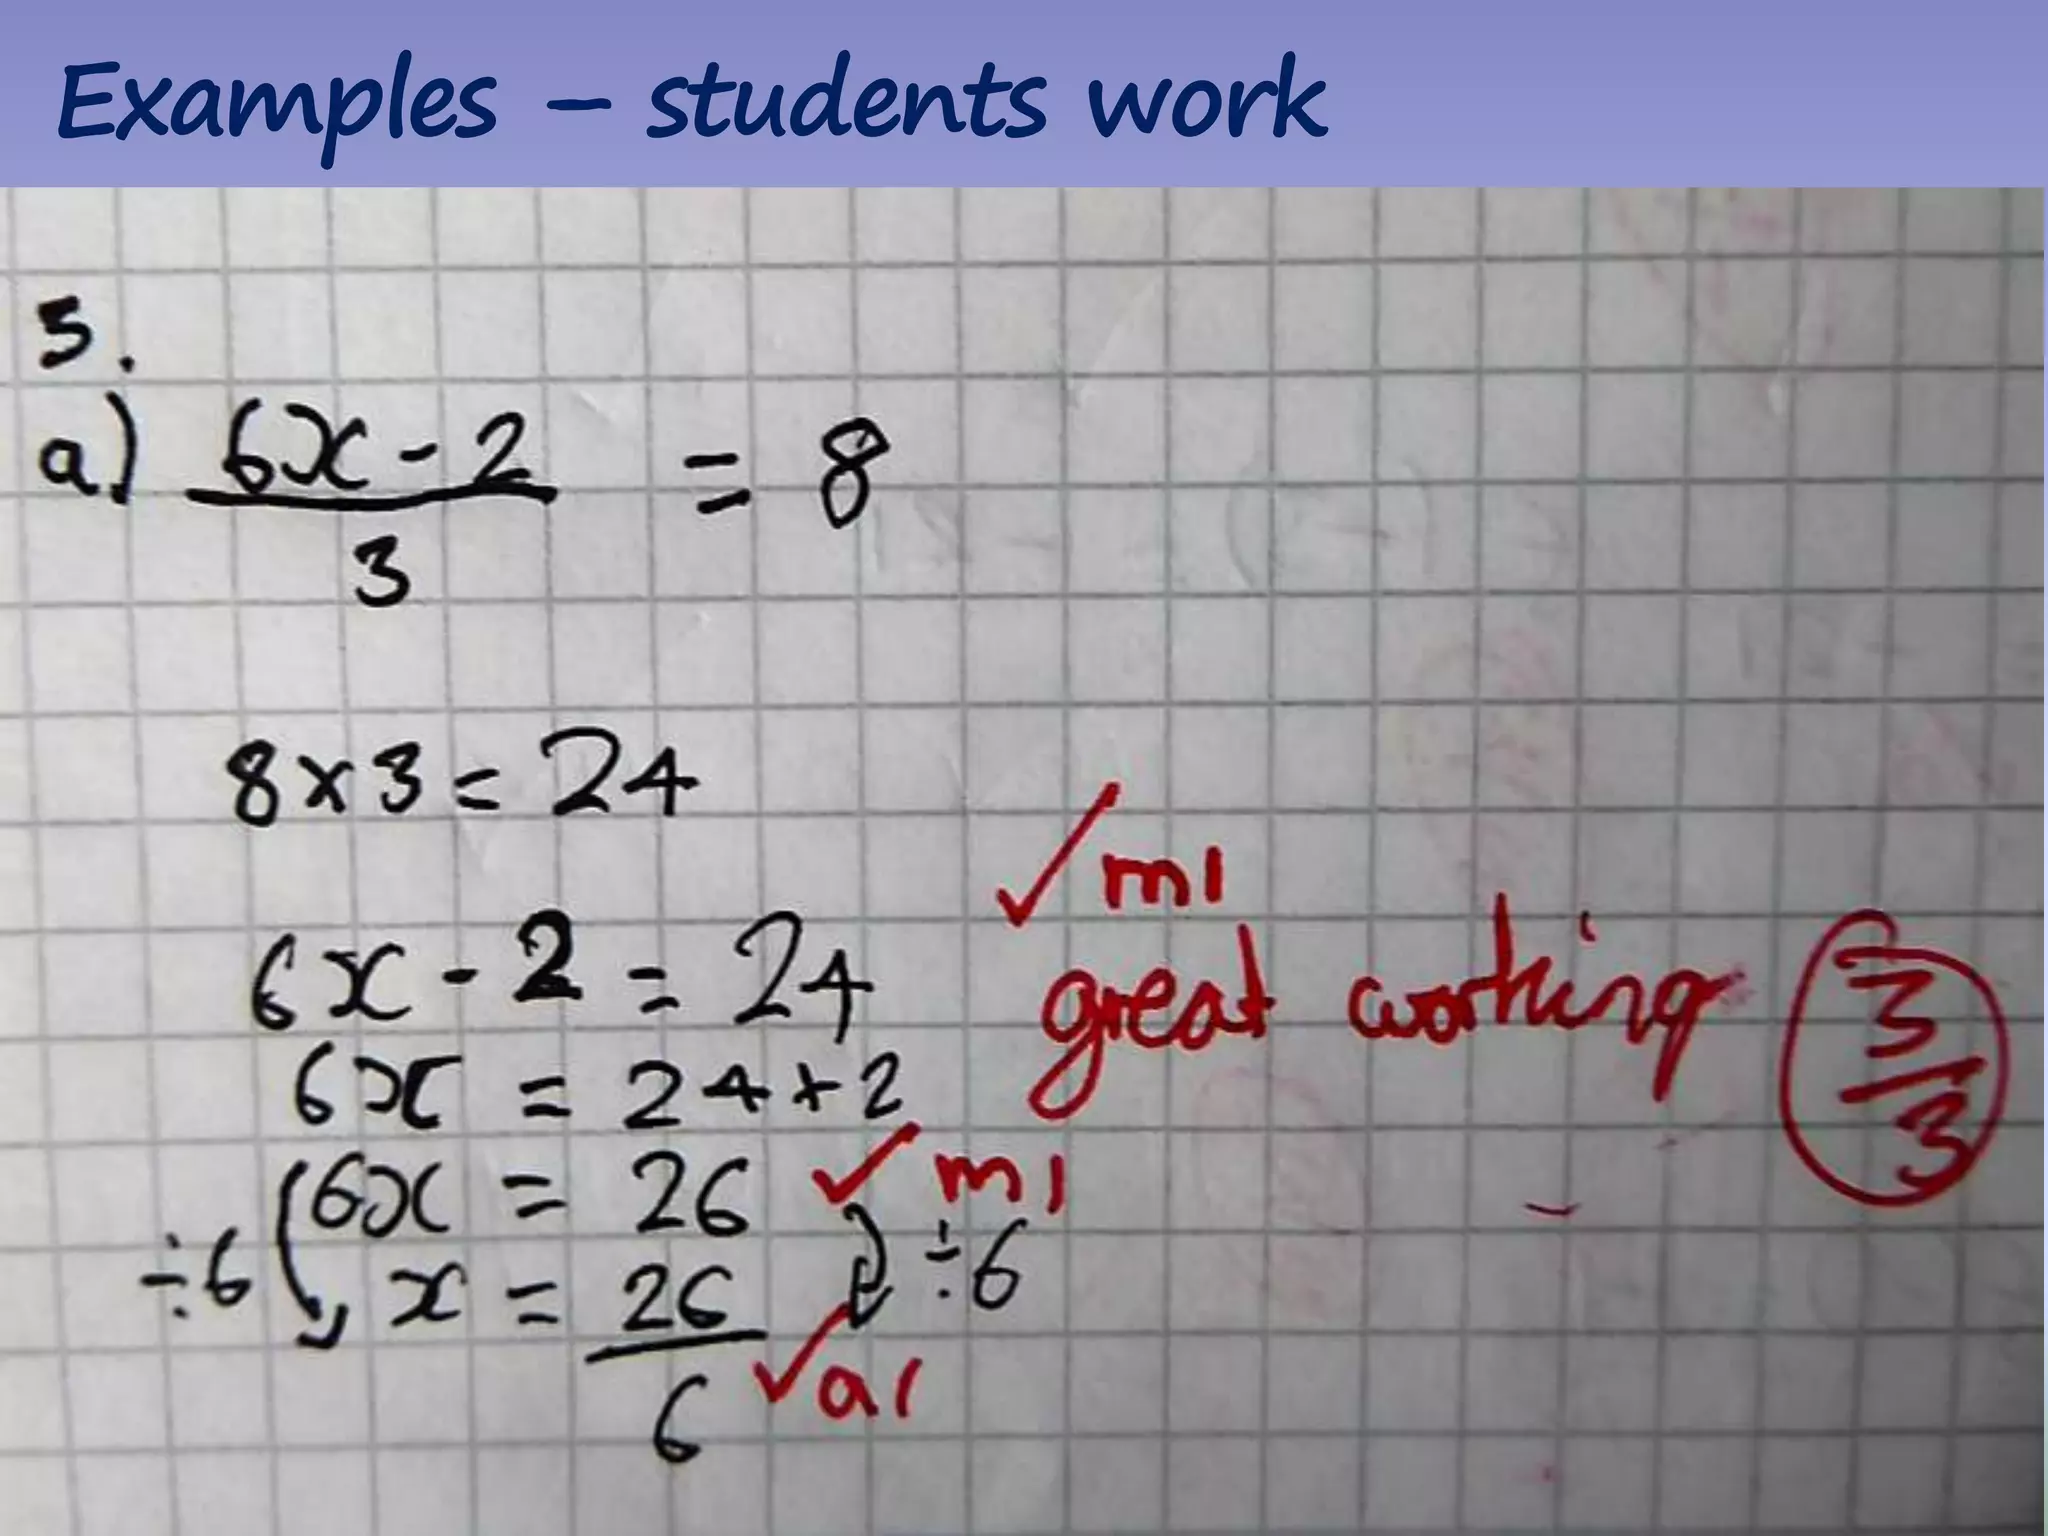 Examples – students work
5.
a) 6x - 2 = 8
3
8 x 3 = 24
✓ m1
6x - 2 = 24 great working 3/3
6x = 24 + 2
6x = 26 ✓ m1
÷6 x = 26 ÷6
6 ✓ a1